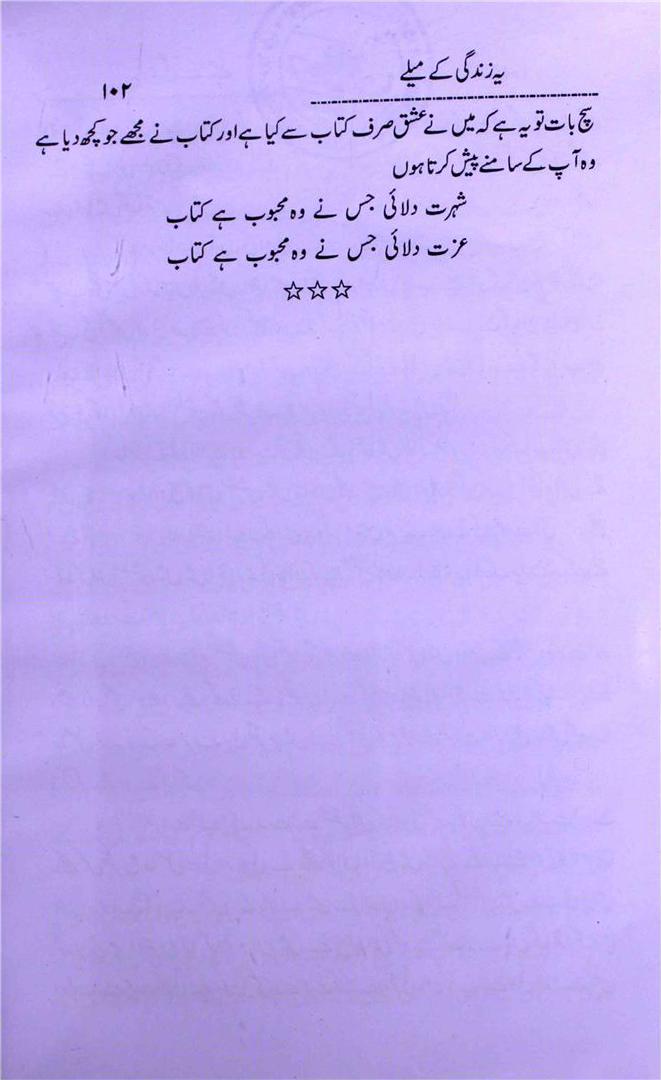 یہ زندگی کے میلے
۱۰۲
سچ بات تو یہ ہے کہ میں نے عشق صرف کتاب سے کیا ہے اور کتاب نے مجھے جو کچھ دیا ہے
وہ آپ کے سامنے پیش کرتا ہوں
شہرت دلائی جس نے وہ محبوب ہے کتاب
عزت دلائی جس نے وہ محبوب ہے کتاب
☆☆☆